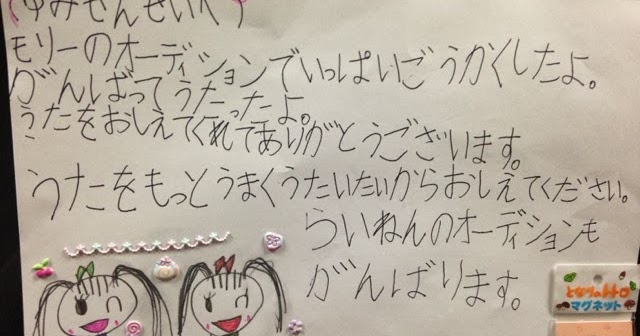 (ゆみせんせいへ)
モリーのオーディションでいっぱいごうかくしたよ。
がんばってうたったよ。
うたをおしえてくれてありがとうございます。
うたをもっとうまくうたいたいからおしえてください。
らいねんのオーディションも
がんばります。
となりのトトロ
マグネット